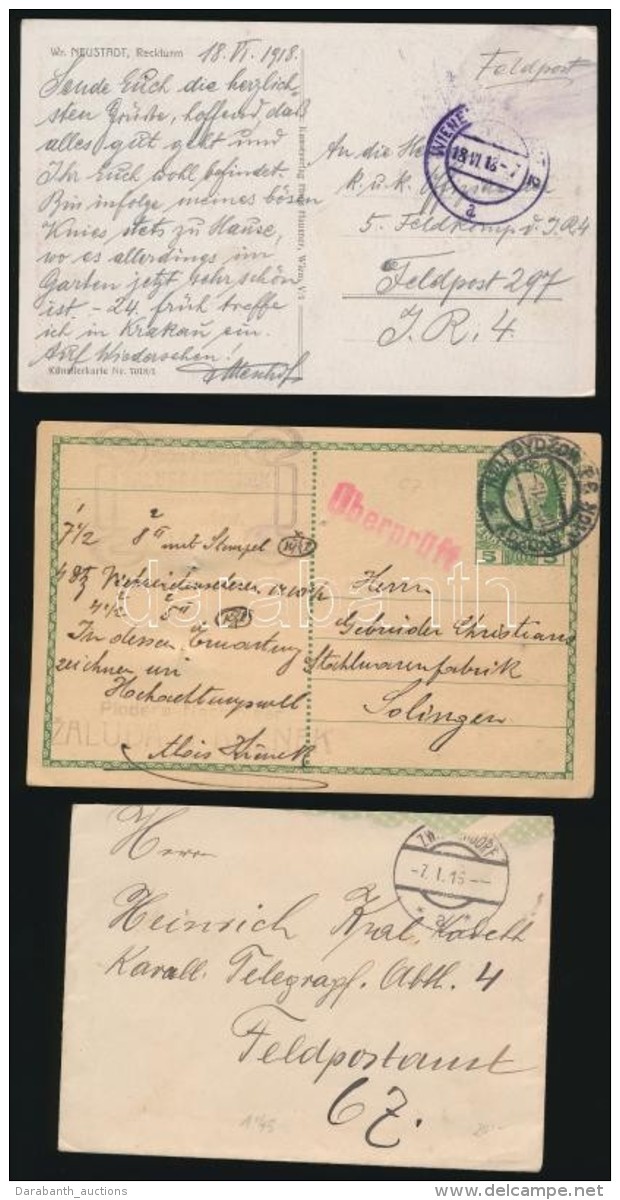 Wr. NEUSTADT, Reckturm
18. VI. 1918.
Sende Euch die herzlich-
sten Grüße, hoffend, daß
alles gut geht und
Ihr Euch wohl befindet.
Bin infolge meines bösen
Knies stets zu Hause,
wo es allerdings im
Garten jetzt sehr schön
ist - 24. früh treffe
ich in Krakau ein.
Auf Wiedersehen!
Künstlerkarte Nr.
Feldpost
WIENE 2
18 VI 18
a
An die
k. u. k.
5. Feldkomp. d. I.R.4
Feldpost 297
I. R. 4.
Überprüft
NOVÝ BYDŽOV
5 5
7 1/2 8" mit Stempel
4 1/2 5"
In dessen Erwartung
zeichnen wir
Hochachtungsvoll
Alois
Herrn
Gebrüder Christians
Stahlwarenfabrik
Solingen
darabanth
-7. I. 15
Herrn
Heinrich Kral, Kadett
Telegraf. Abtl. 4
Feldpostamt
67.
Darabanth_auctions
www.delcampe.net